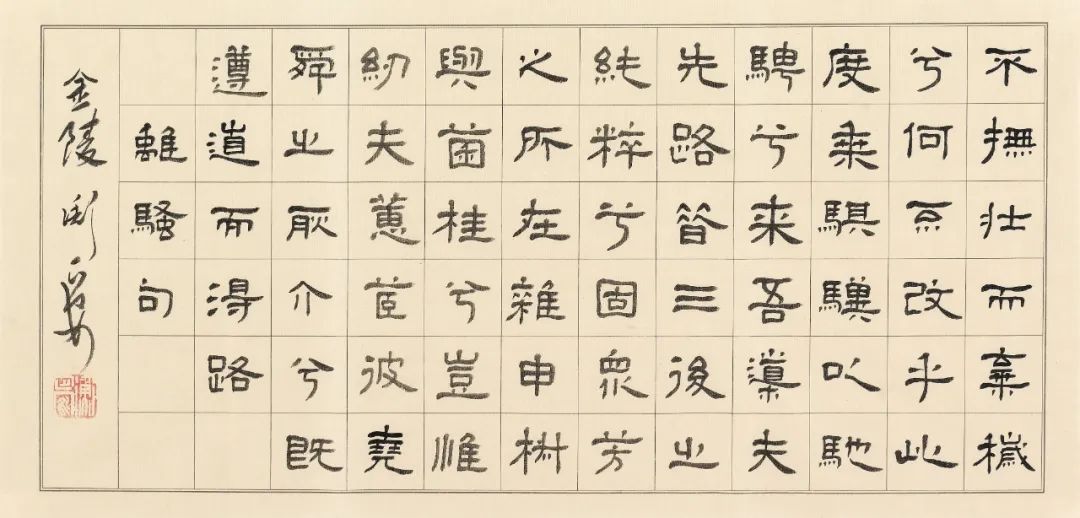 不撫壯而棄穢
兮何不改乎此
度乘騏驥以馳
騁兮来吾導夫
先路昔三後之
純粹兮固衆芳
之所在雜申椒
與菌桂兮豈惟
紉夫蕙茝彼堯
舜之耿介兮既
遵道而得路
離騷句
金陵